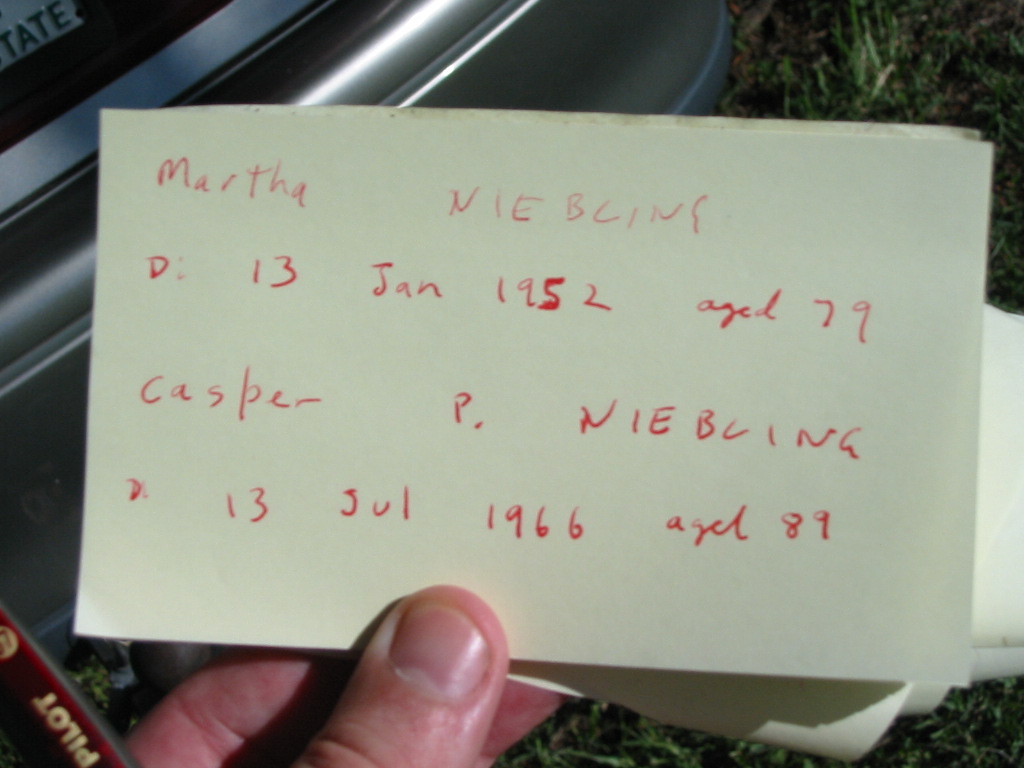 TATE
Martha NIEBLING
D: 13 Jan 1952 aged 79
Casper P. NIEBLING
D: 13 Jul 1966 aged 89
PILOT